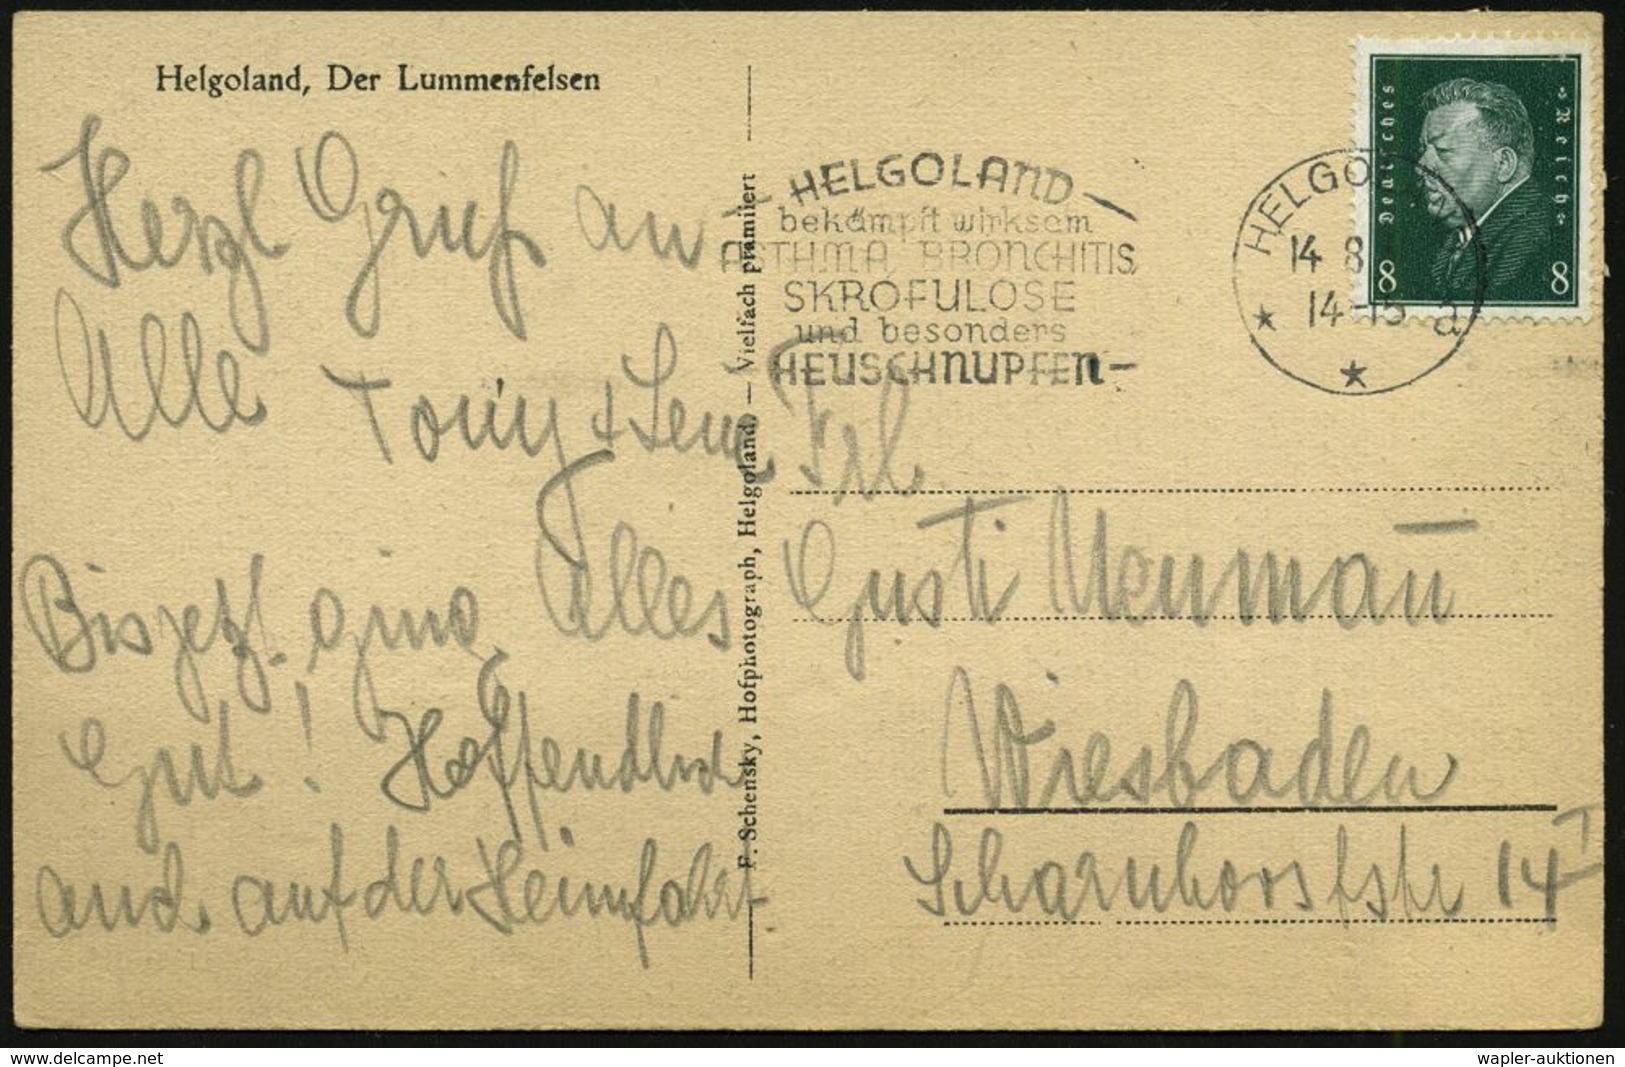 Helgoland, Der Lummenfelsen
Herzl Gruß an
Alle Tony + Leni
Bis jetzt ging Alles
Gut! Hoffendlich
auch auf der Heimfahrt.
F. Schensky, Hofphotograph, Helgoland. — Vielfach prämiiert
HELGOLAND
bekämpft wirksam
ASTHMA, BRONCHITIS,
SKROFULOSE
und besonders
HEUSCHNUPFEN
HELGO
14 8
14-15 a
Deutsches Reich
8 8
Frl.
Gusti Neumañ
Wiesbaden
Scharnhorststr 14 I
delcampe.net
wapler-auktionen